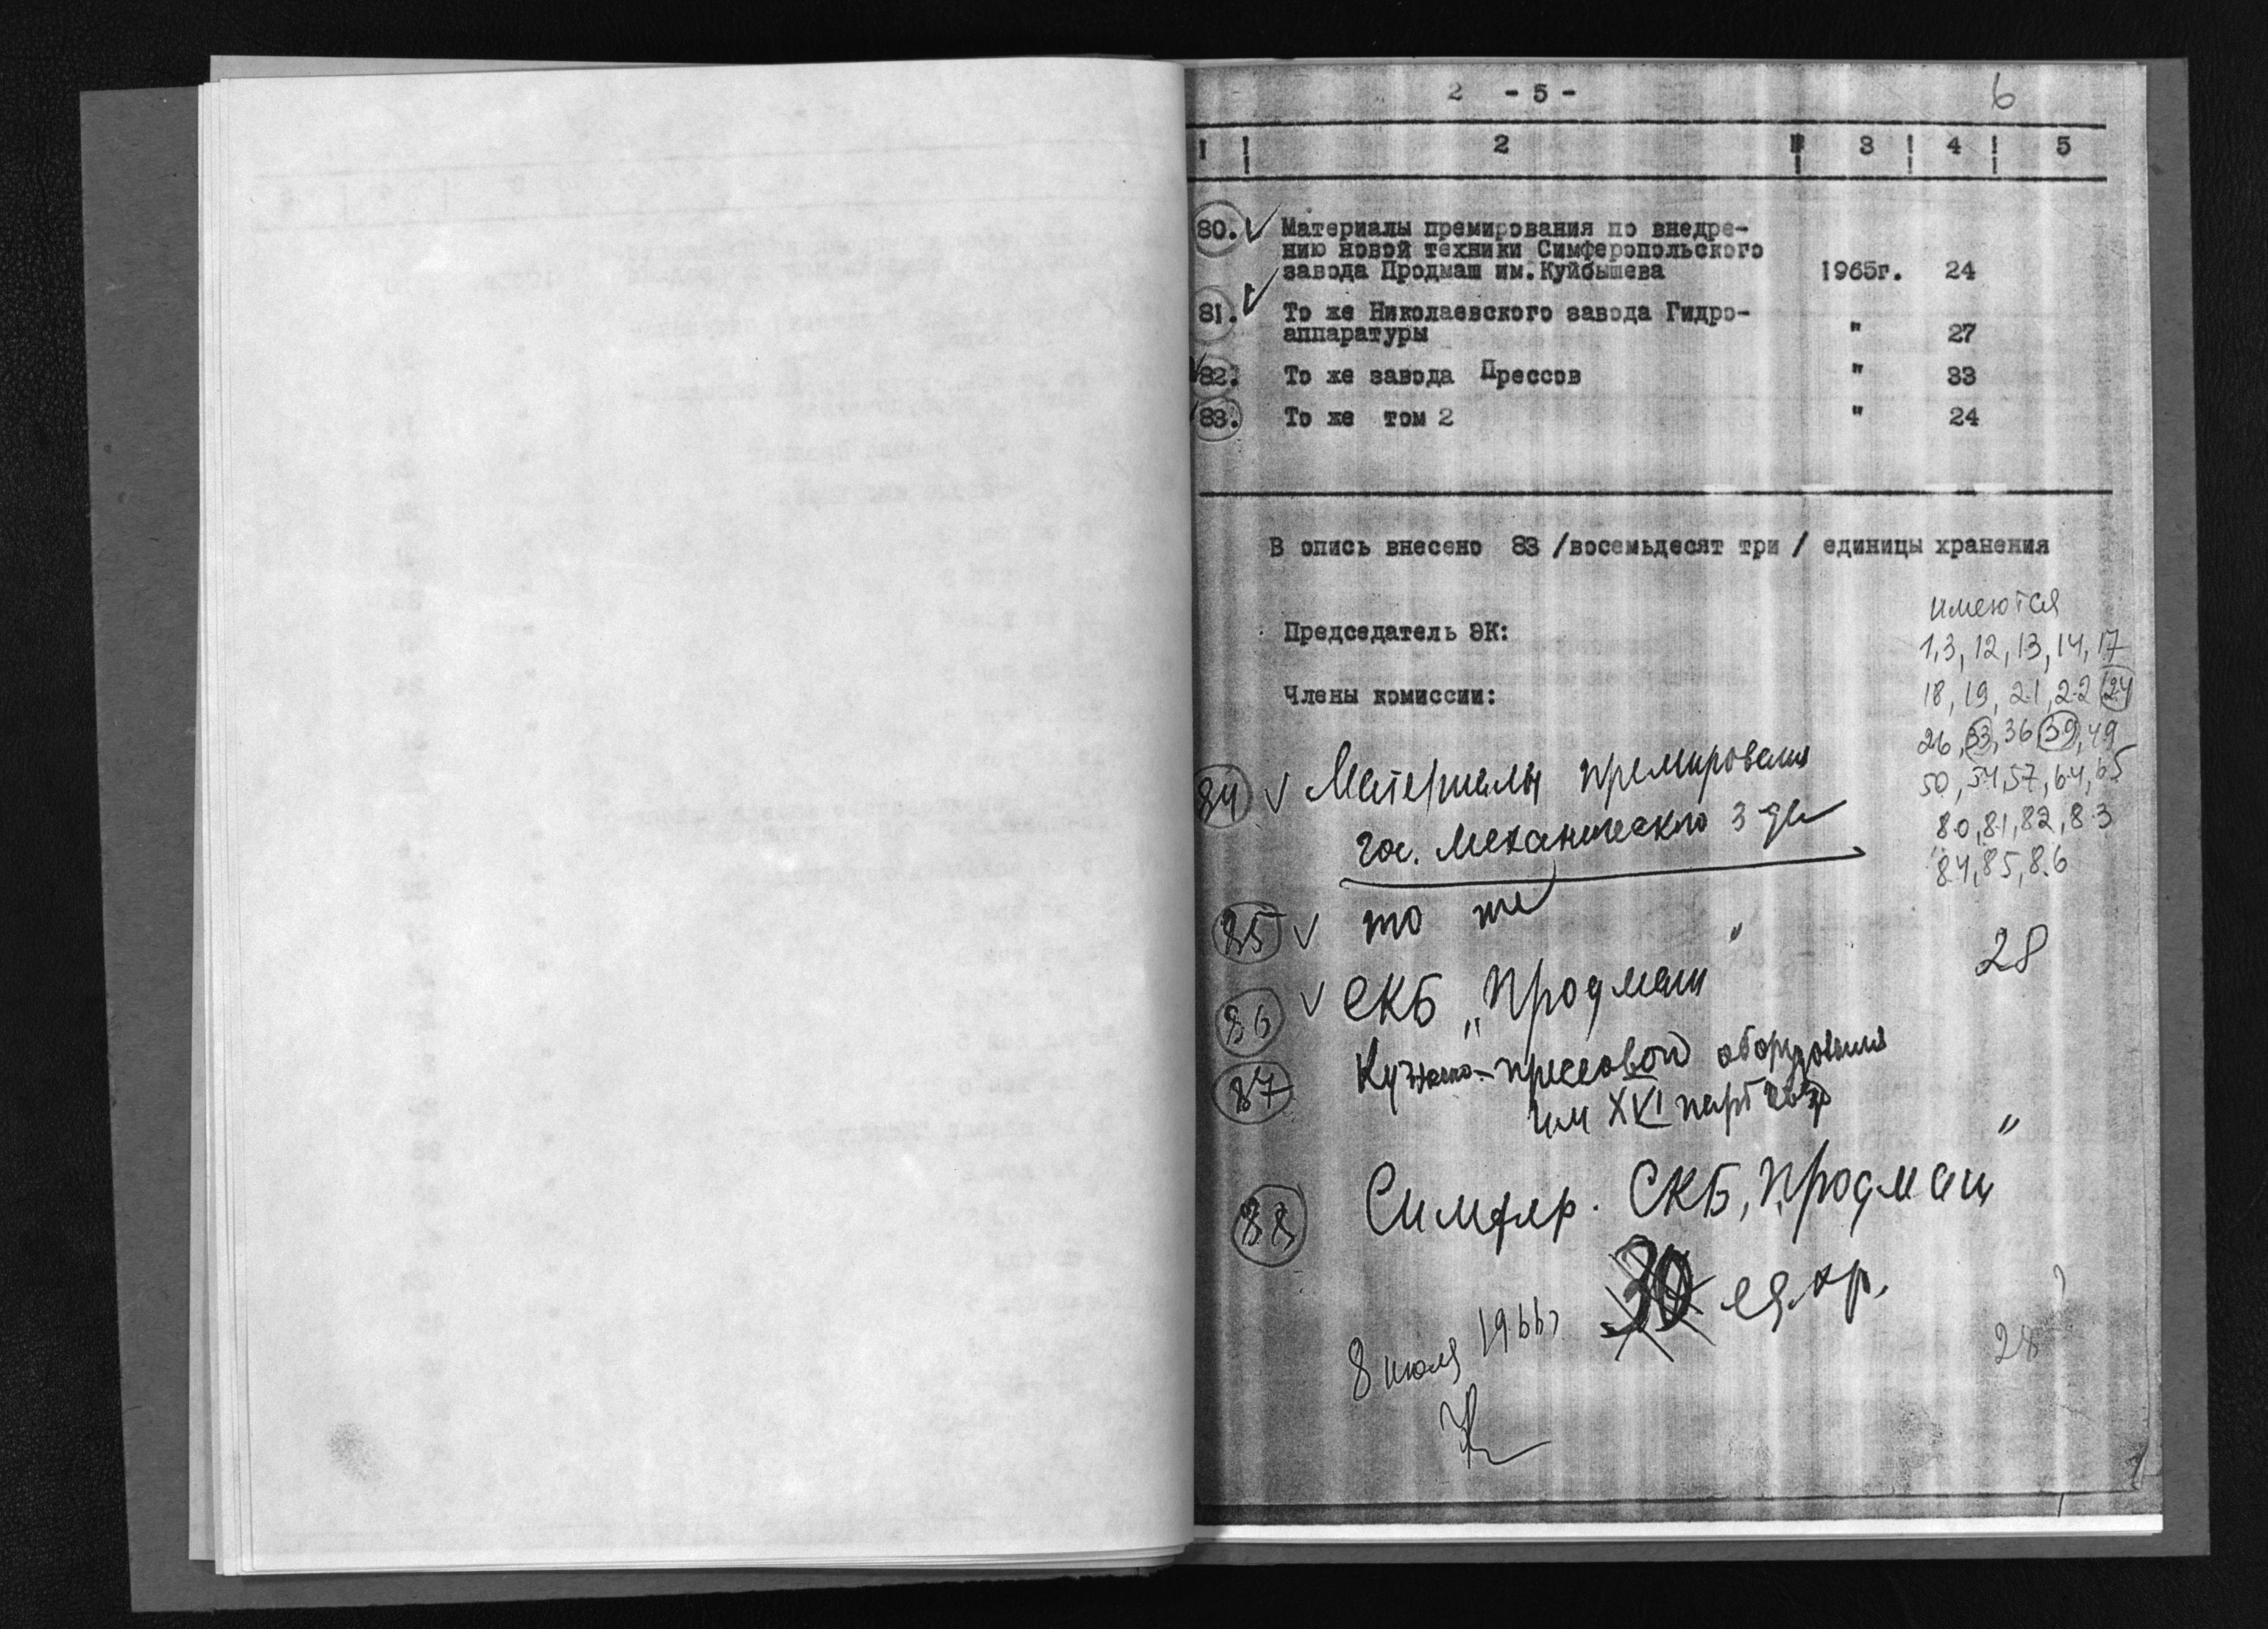 2 - 5 -
6
1 ! 2 ! 3 ! 4 ! 5
80. Материалы премирования по внедре-
нию новой техники Симферопольского
завода Продмаш им.Куйбышева 1965г. 24
81. То же Николаевского завода Гидро-
аппаратуры " 27
82. То же завода Прессов " 33
83. То же том 2 " 24
В опись внесено 83 /восемьдесят три / единицы хранения
Председатель ЭК:
Члены комиссии:
имеются
1,3, 12, 13, 14, 17
18, 19, 21, 22 24
26, 33, 36 39, 49
50, 54, 57, 64, 65
80, 81, 82, 83
84, 85, 86
28
84 Материалы премирования
гос. механического з-да
85 то же "
86 СКБ „Продмаш
87 Кузнечно-прессовой оборудования
им XVI партсъезда
88 Симфер. СКБ „Продмаш"
30 ед.хр.
8 июля 1966г
28